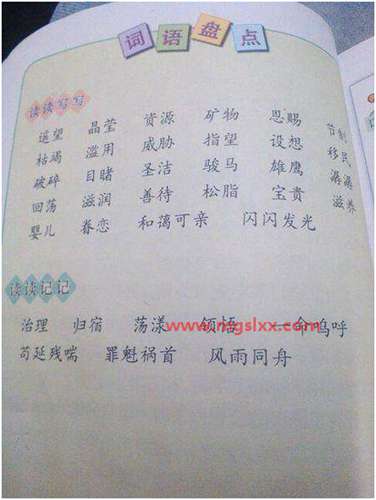 词语盘点
读读写写
遥望 晶莹 资源 矿物 恩赐 节制
枯竭 滥用 威胁 指望 设想 移民
破碎 目睹 圣洁 骏马 雄鹰 潺潺
回荡 滋润 善待 松脂 宝贵 滋养
婴儿 眷恋 和蔼可亲 闪闪发光
读读记记
治理 归宿 荡漾 领悟 一命呜呼
苟延残喘 罪魁祸首 风雨同舟
www.mgslxx.com